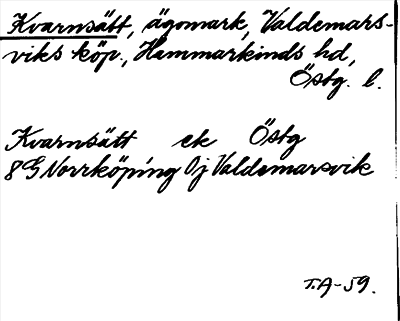 Kvarnsätt, ägomark, Valdemars-
viks köp., Hammarkinds hd,
Östg. l.
Kvarnsätt ek Östg
8G Norrköping Oj Valdemarsvik
T.A-59.